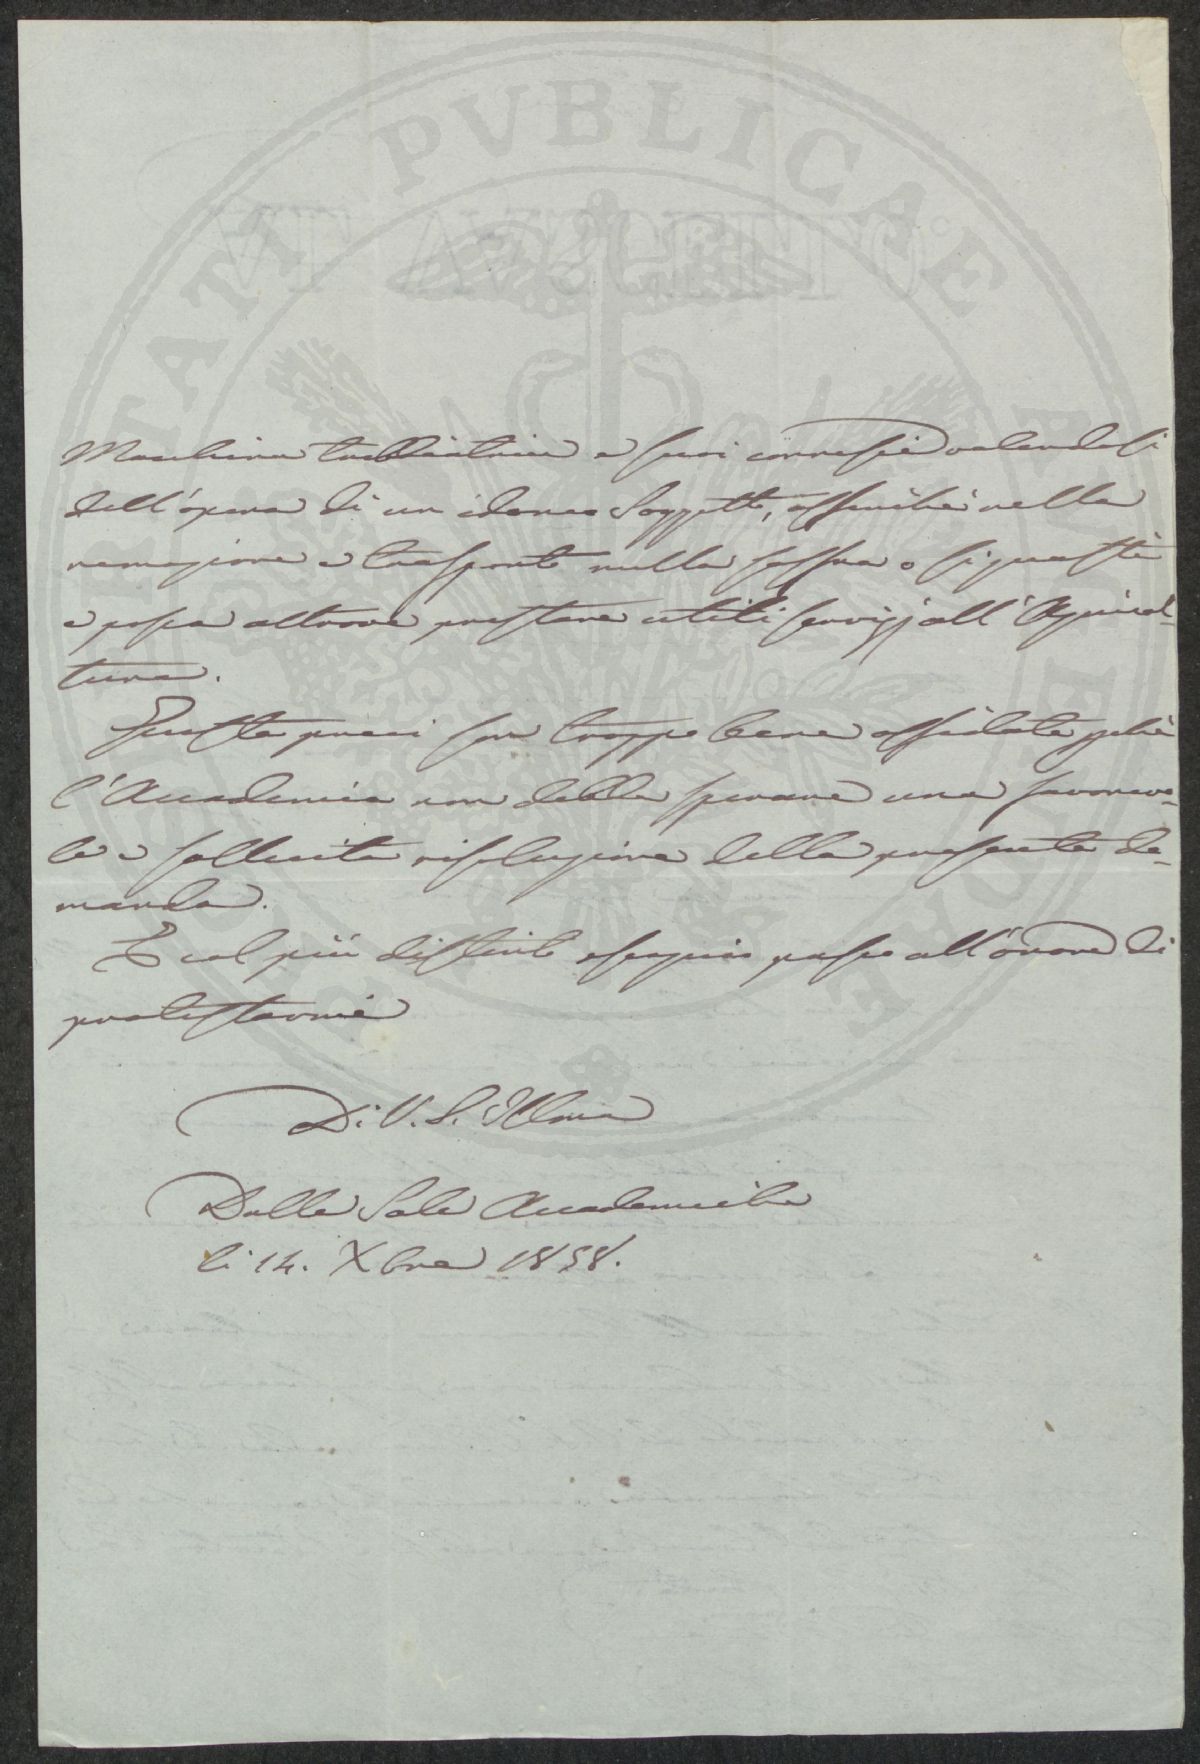 PVBLICAE
Macchina trebbiatrice e suoi connessi valendosi
dell'opera di un idoneo Soggetto, affinchè nella
remozione e trasporto nulla soffra o si guasti
e possa altrove prestare utili servigj all'Agricol-
tura.
Queste preci son troppo bene affidate perchè
l'Accademia non debba sperare una favorevo-
le e sollecita risoluzione della presente do-
manda.
E col più distinto ossequio passo all'onore di
protestarmi
Di V. S. Illma
Dalle Sale Accademiche
li 14. Xbre 1858.